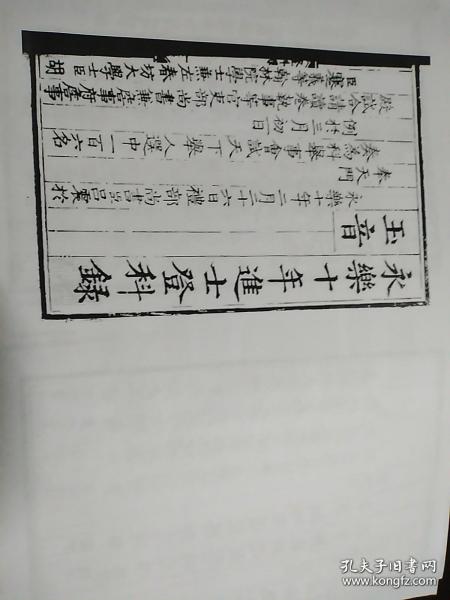 永樂十年進士登科錄
玉音
永樂十年二月二十六日禮部尚書臣呂震於
奉天門
奏爲科舉事會試天下舉人選中一百六名
例於三月初一日
殿試合請讀卷執事等官吏部尚書兼詹事府詹事
臣蹇義等翰林院學士兼左春坊大學士臣胡
孔夫子旧书网
www.kongfz.com